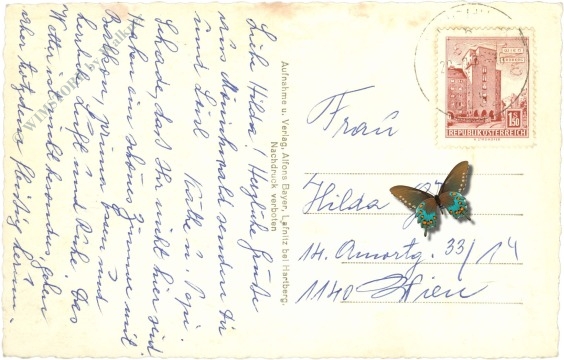 Liebe Hilda! Herzliche Grüße
aus Mönichwald senden Dir
und Leorl Käthe u. Papi.
Schade, daß Ihr nicht hier seid.
Haben ein schönes Zimmer mit
Balkon, prima Essen und
herrliche Luft und Ruhe. Das
Wetter ist nicht besonders, gehen
aber trotzdem fleißig herum.
Aufnahme u. Verlag: Alfons Bayer, Lafnitz bei Hartberg.
Nachdruck verboten
REPUBLIK ÖSTERREICH
1.50
Frau
Hilda
14. Amortg. 33/14
1140 Wien